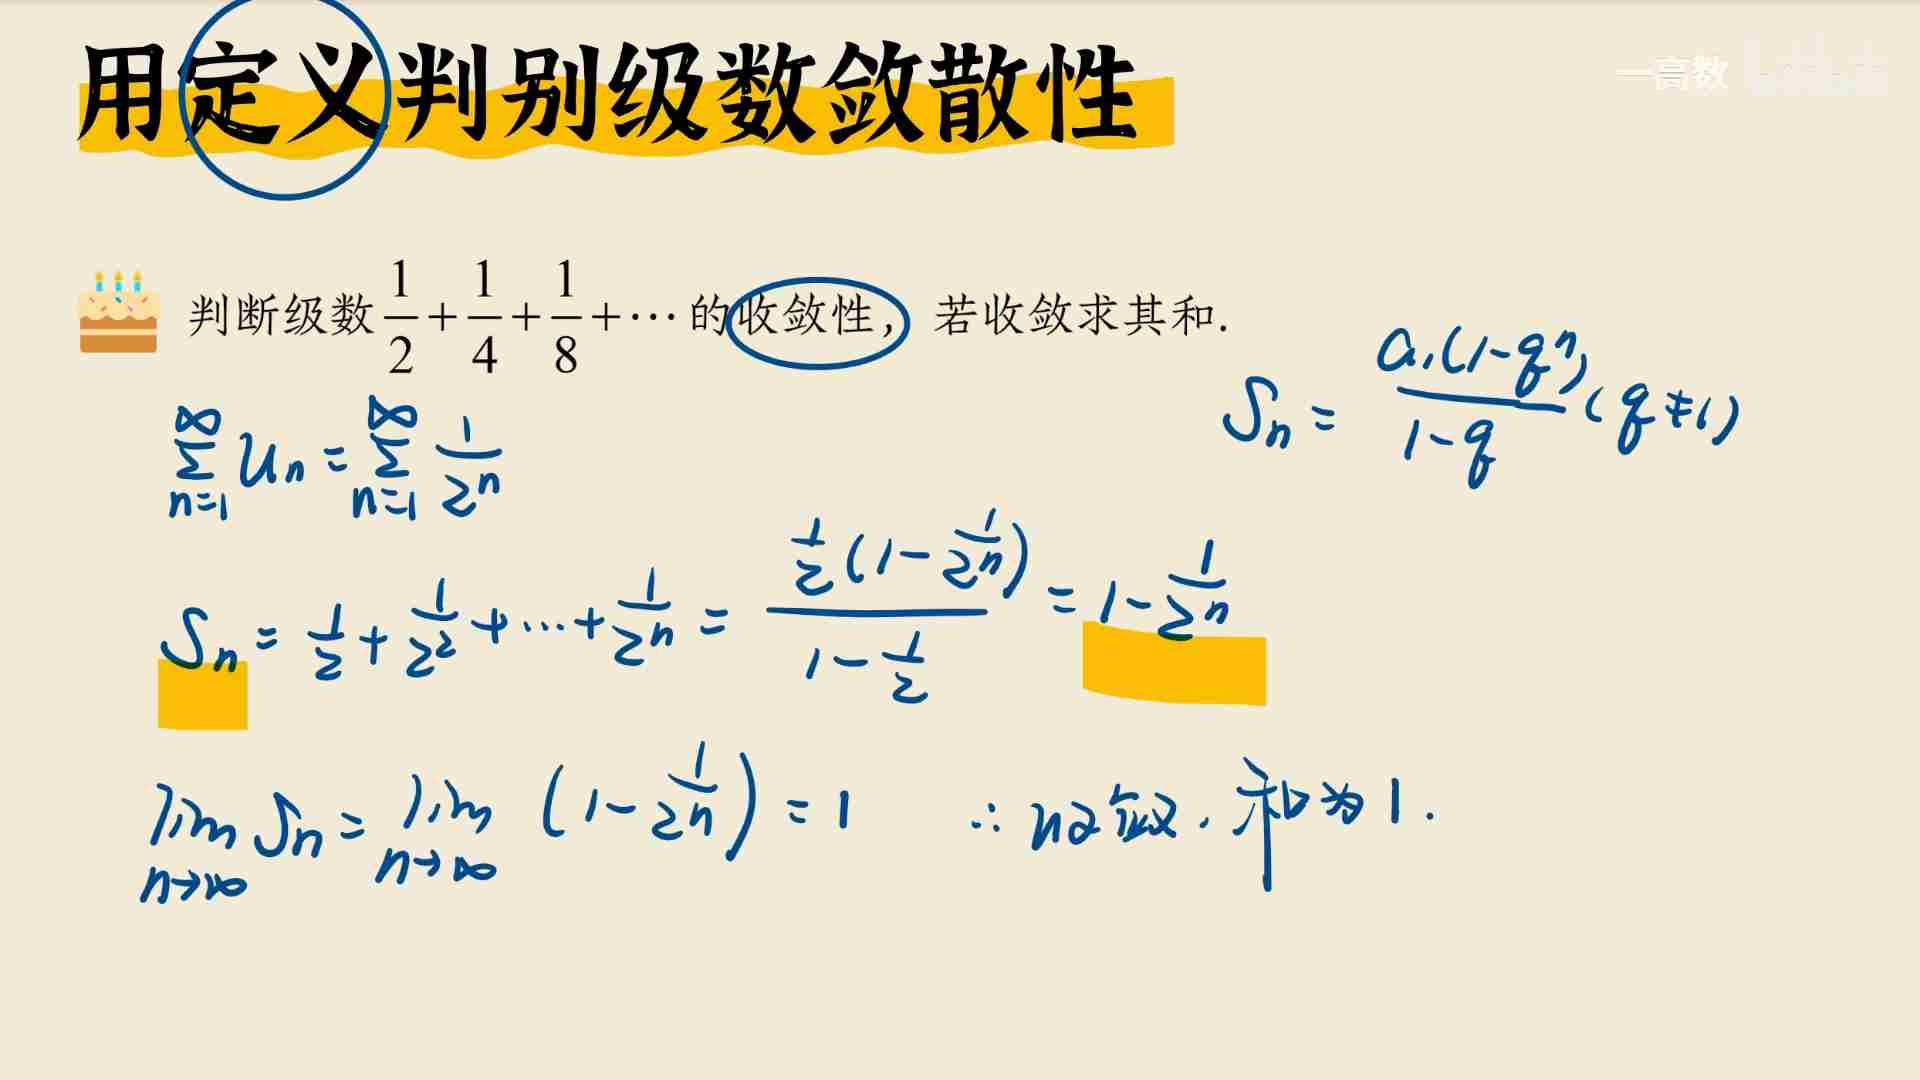 用定义判别级数敛散性
一高数
判断级数 1/2 + 1/4 + 1/8 + ⋯ 的收敛性，若收敛求其和.
Sn = a₁(1-qⁿ)/(1-q) (q≠1)
∑_{n=1}^{∞} Un = ∑_{n=1}^{∞} 1/2ⁿ
Sn = 1/2 + 1/2² + ⋯ + 1/2ⁿ = 1/2(1-1/2ⁿ)/(1-1/2) = 1-1/2ⁿ
lim_{n→∞} Sn = lim_{n→∞} (1-1/2ⁿ) = 1 ∴ 收敛. 和为1.